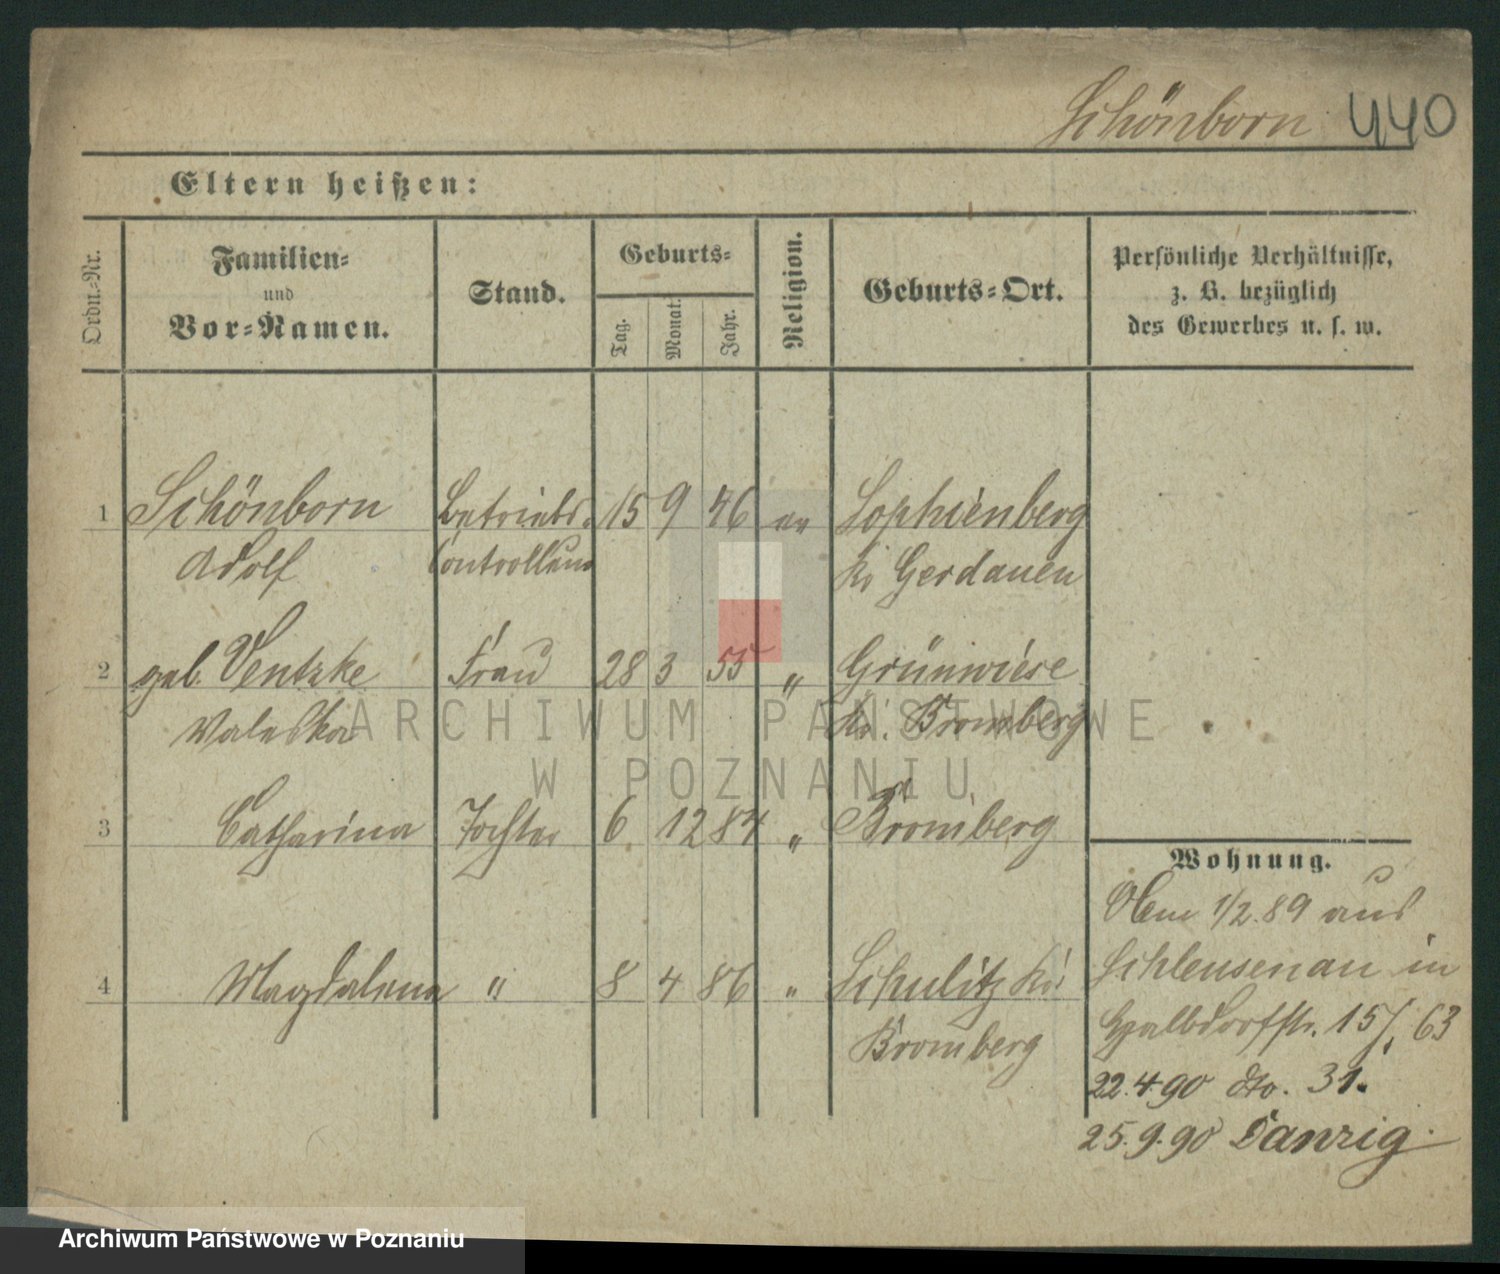 Schönborn 440
Eltern heißen:
Ordn.-Nr.
Familien-
und
Vor-Namen.
Stand.
Geburts-
Tag.
Monat.
Jahr.
Religion.
Geburts-Ort.
Persönliche Verhältnisse,
z. B. bezüglich
des Gewerbes u. s. w.
1 Schönborn Betriebs- 15 9 46 ev Sophienberg
Adolf Controlleur Kr Gerdauen
2 geb. Ventzke Frau 28 3 55 " Grünwiese
Valeska Kr. Bromberg
3 Catharina Tochter 6 12 84 " Bromberg
4 Magdalena " 8 4 86 " Schulitz Kr
Bromberg
Wohnung.
1/2.89 aus
Schleusenau in
15/. 63
22.4.90 dto. 31.
25.9.90 Danzig.
ARCHIWUM PAŃSTWOWE
W POZNANIU
Archiwum Państwowe w Poznaniu